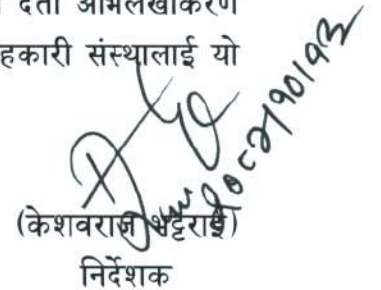 दर्ता अभिलेखीकरण
हकारी संस्थालाई यो
२०८२।१०।१३
(केशवराज भट्टराई)
निर्देशक